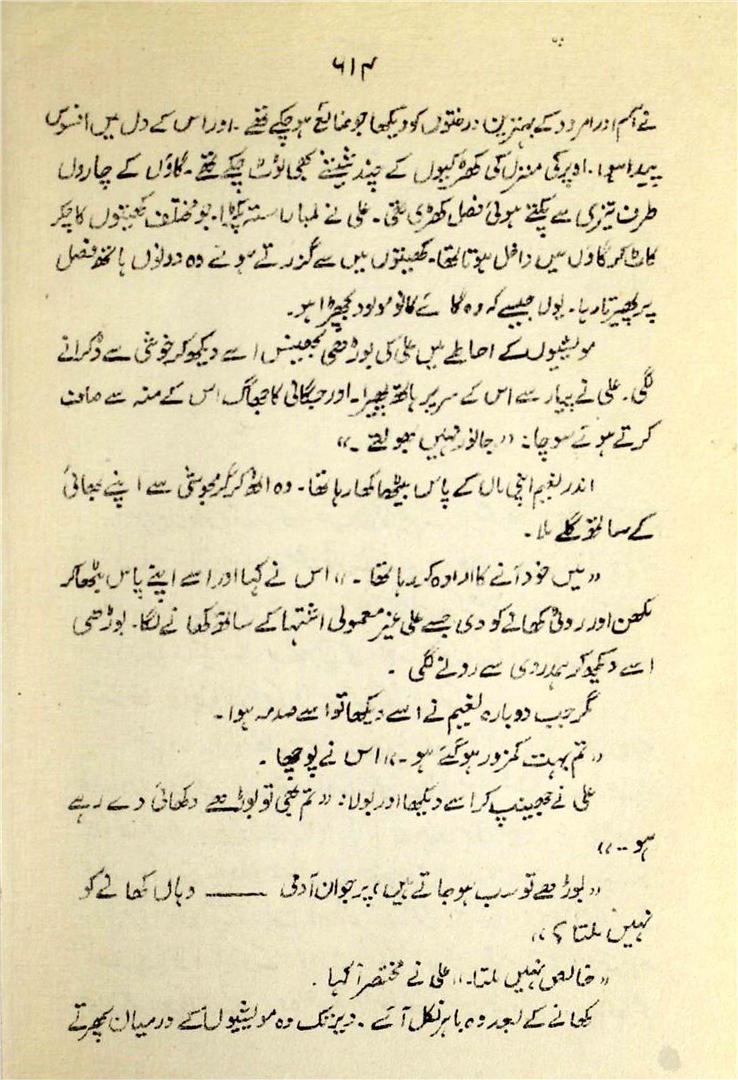 ۶۱۴
نے آم اور امرود کے بہترین درختوں کو دیکھا جو ضائع ہو چکے تھے۔ اور اس کے دل میں افسوس
پیدا ہوا۔ اوپر کی منزل کی کھڑکیوں کے چند شیشے بھی ٹوٹ چکے تھے۔ گاؤں کے چاروں
طرف تیزی سے پکتے ہوئی فصل کھڑی تھی۔ علی نے لمبا راستہ پکڑا۔ جو مختلف کھیتوں کا چکر
کاٹ کر گاؤں میں داخل ہوتا تھا۔ کھیتوں میں سے گزرتے ہوئے وہ دونوں ہاتھ فصل
پر پھیرتا رہا۔ یوں جیسے کہ وہ گائے کا نومولود بچھڑا ہو۔
مویشیوں کے احاطے میں علی کی بوڑھی بھینس اسے دیکھ کر خوشی سے ڈکرانے
لگی۔ علی نے پیار سے اس کے سر پر ہاتھ پھیرا۔ اور جگالی کا جھاگ اس کے منہ سے صاف
کرتے ہوئے سوچا: ”جانور نہیں بھولتے۔“
اندر نعیم اپنی ماں کے پاس بیٹھا کھا رہا تھا۔ وہ اٹھ کر گرمجوشی سے اپنے بھائی
کے ساتھ گلے ملا۔
”میں خود آنے کا ارادہ کر رہا تھا۔“ اس نے کہا اور اسے اپنے پاس بٹھا کر
مکھن اور روٹی کھانے کو دی جسے علی غیر معمولی اشتہا کے ساتھ کھانے لگا۔ بوڑھی
اسے دیکھ کر ہمدردی سے رونے لگی۔
مگر جب دوبارہ نعیم نے اسے دیکھا تو اسے صدمہ ہوا۔
”تم بہت کمزور ہو گئے ہو۔“ اس نے پوچھا۔
علی نے جھینپ کر اسے دیکھا اور بولا: ”تم بھی تو بوڑھے دکھائی دے رہے
ہو۔۔“
”بوڑھے تو سب ہو جاتے ہیں، پر جوان آدمی —— وہاں کھانے کو
نہیں ملتا؟“
”خالص نہیں ملتا۔“ علی نے مختصراً کہا۔
کھانے کے بعد وہ باہر نکل آئے۔ دیر تک وہ مویشیوں کے درمیان پھرتے